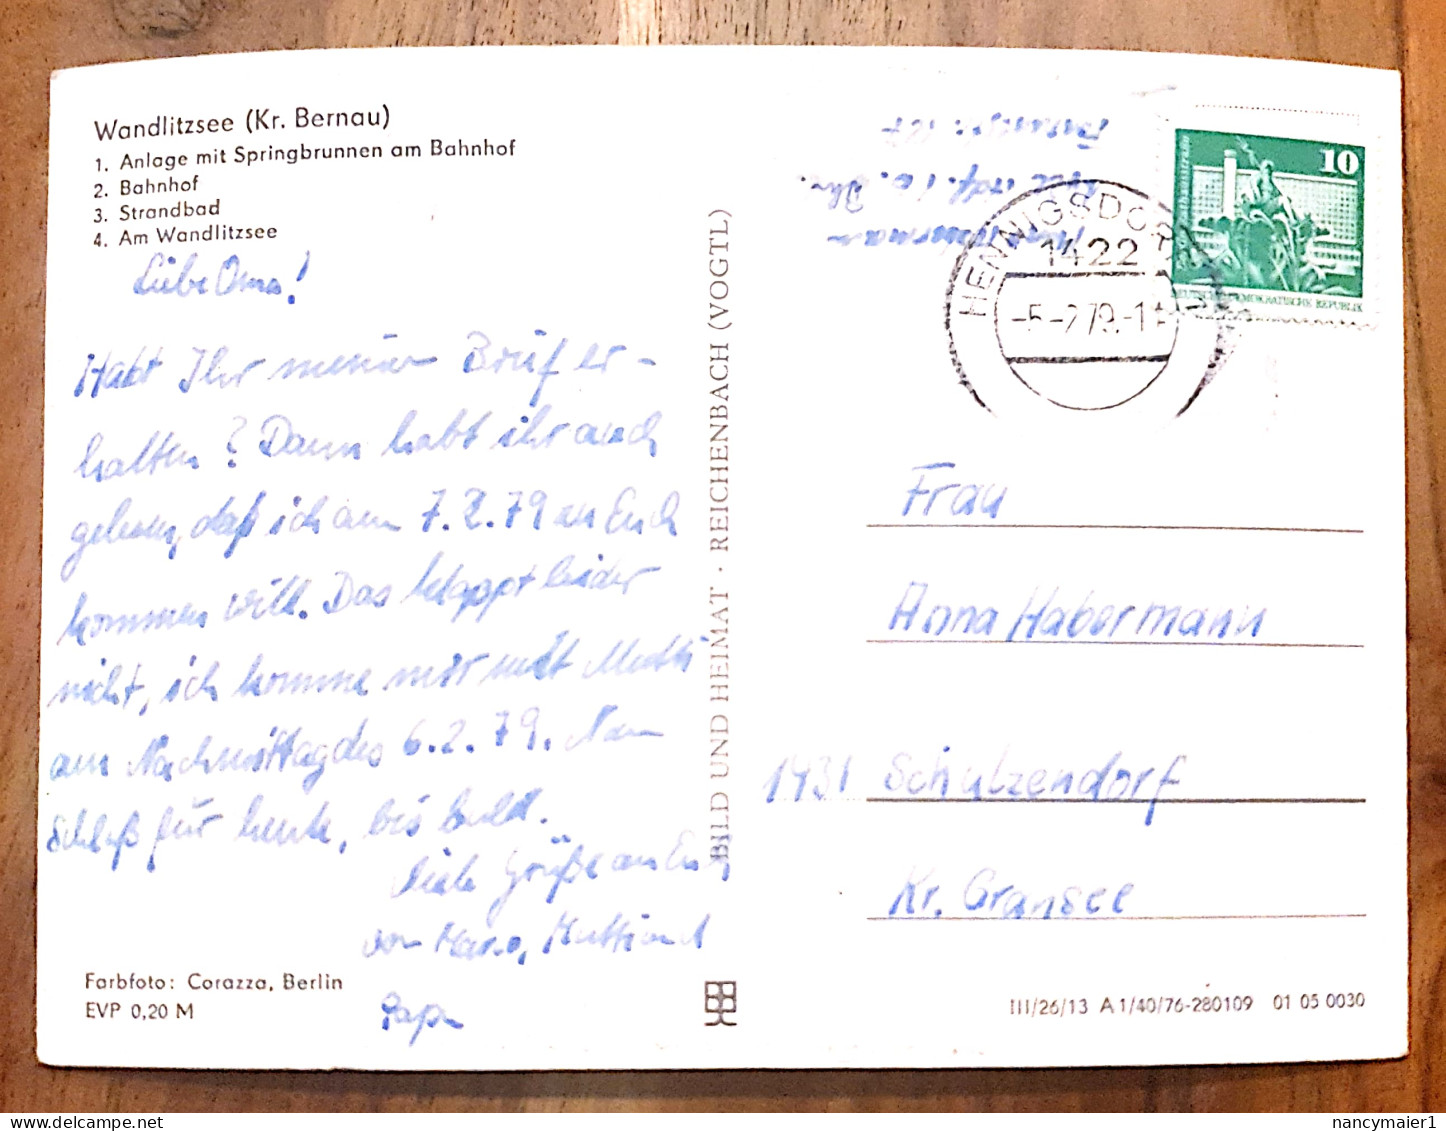 Wandlitzsee (Kr. Bernau)
1. Anlage mit Springbrunnen am Bahnhof
2. Bahnhof
3. Strandbad
4. Am Wandlitzsee
Liebe Oma!
Habt Ihr meinen Brief er-
halten? Dann habt ihr auch
gelesen, daß ich am 7.2.79 an Euch
kommen will. Das klappt leider
nicht, ich komme mit Mutti
am Nachmittag des 6.2.79. Nun
Schluß für heute, bis bald.
Liebe Grüße an Euch
von Mario, Mutti und
Papa
Farbfoto: Corazza, Berlin
EVP 0,20 M
BILD UND HEIMAT · REICHENBACH (VOGTL)
HENNIGSDORF
1422
-5.-2.79.-1
10
DEUTSCHE DEMOKRATISCHE REPUBLIK
Frau
Anna Habermann
1431 Schulzendorf
Kr. Gransee
III/26/13 A 1/40/76-280109 01 05 0030
nancymaier1